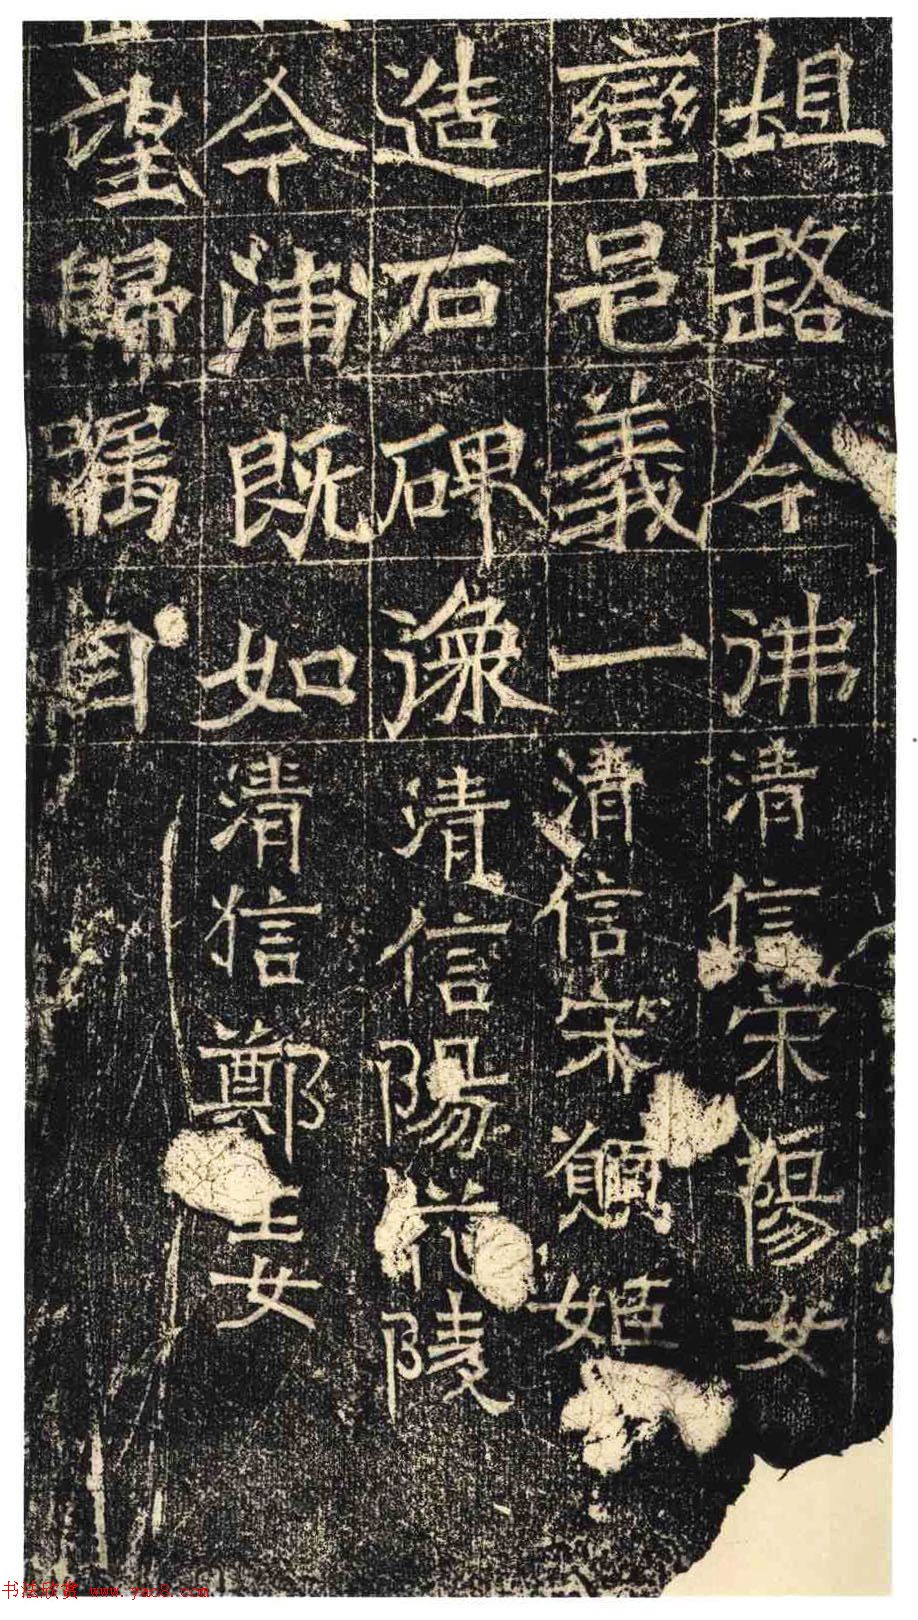 路今沸清信宋陽女
邑義一清信宋姬
造石碑清信陽陵
今浦既如清信鄭女
望歸自
书法欣赏 www.yac8.com